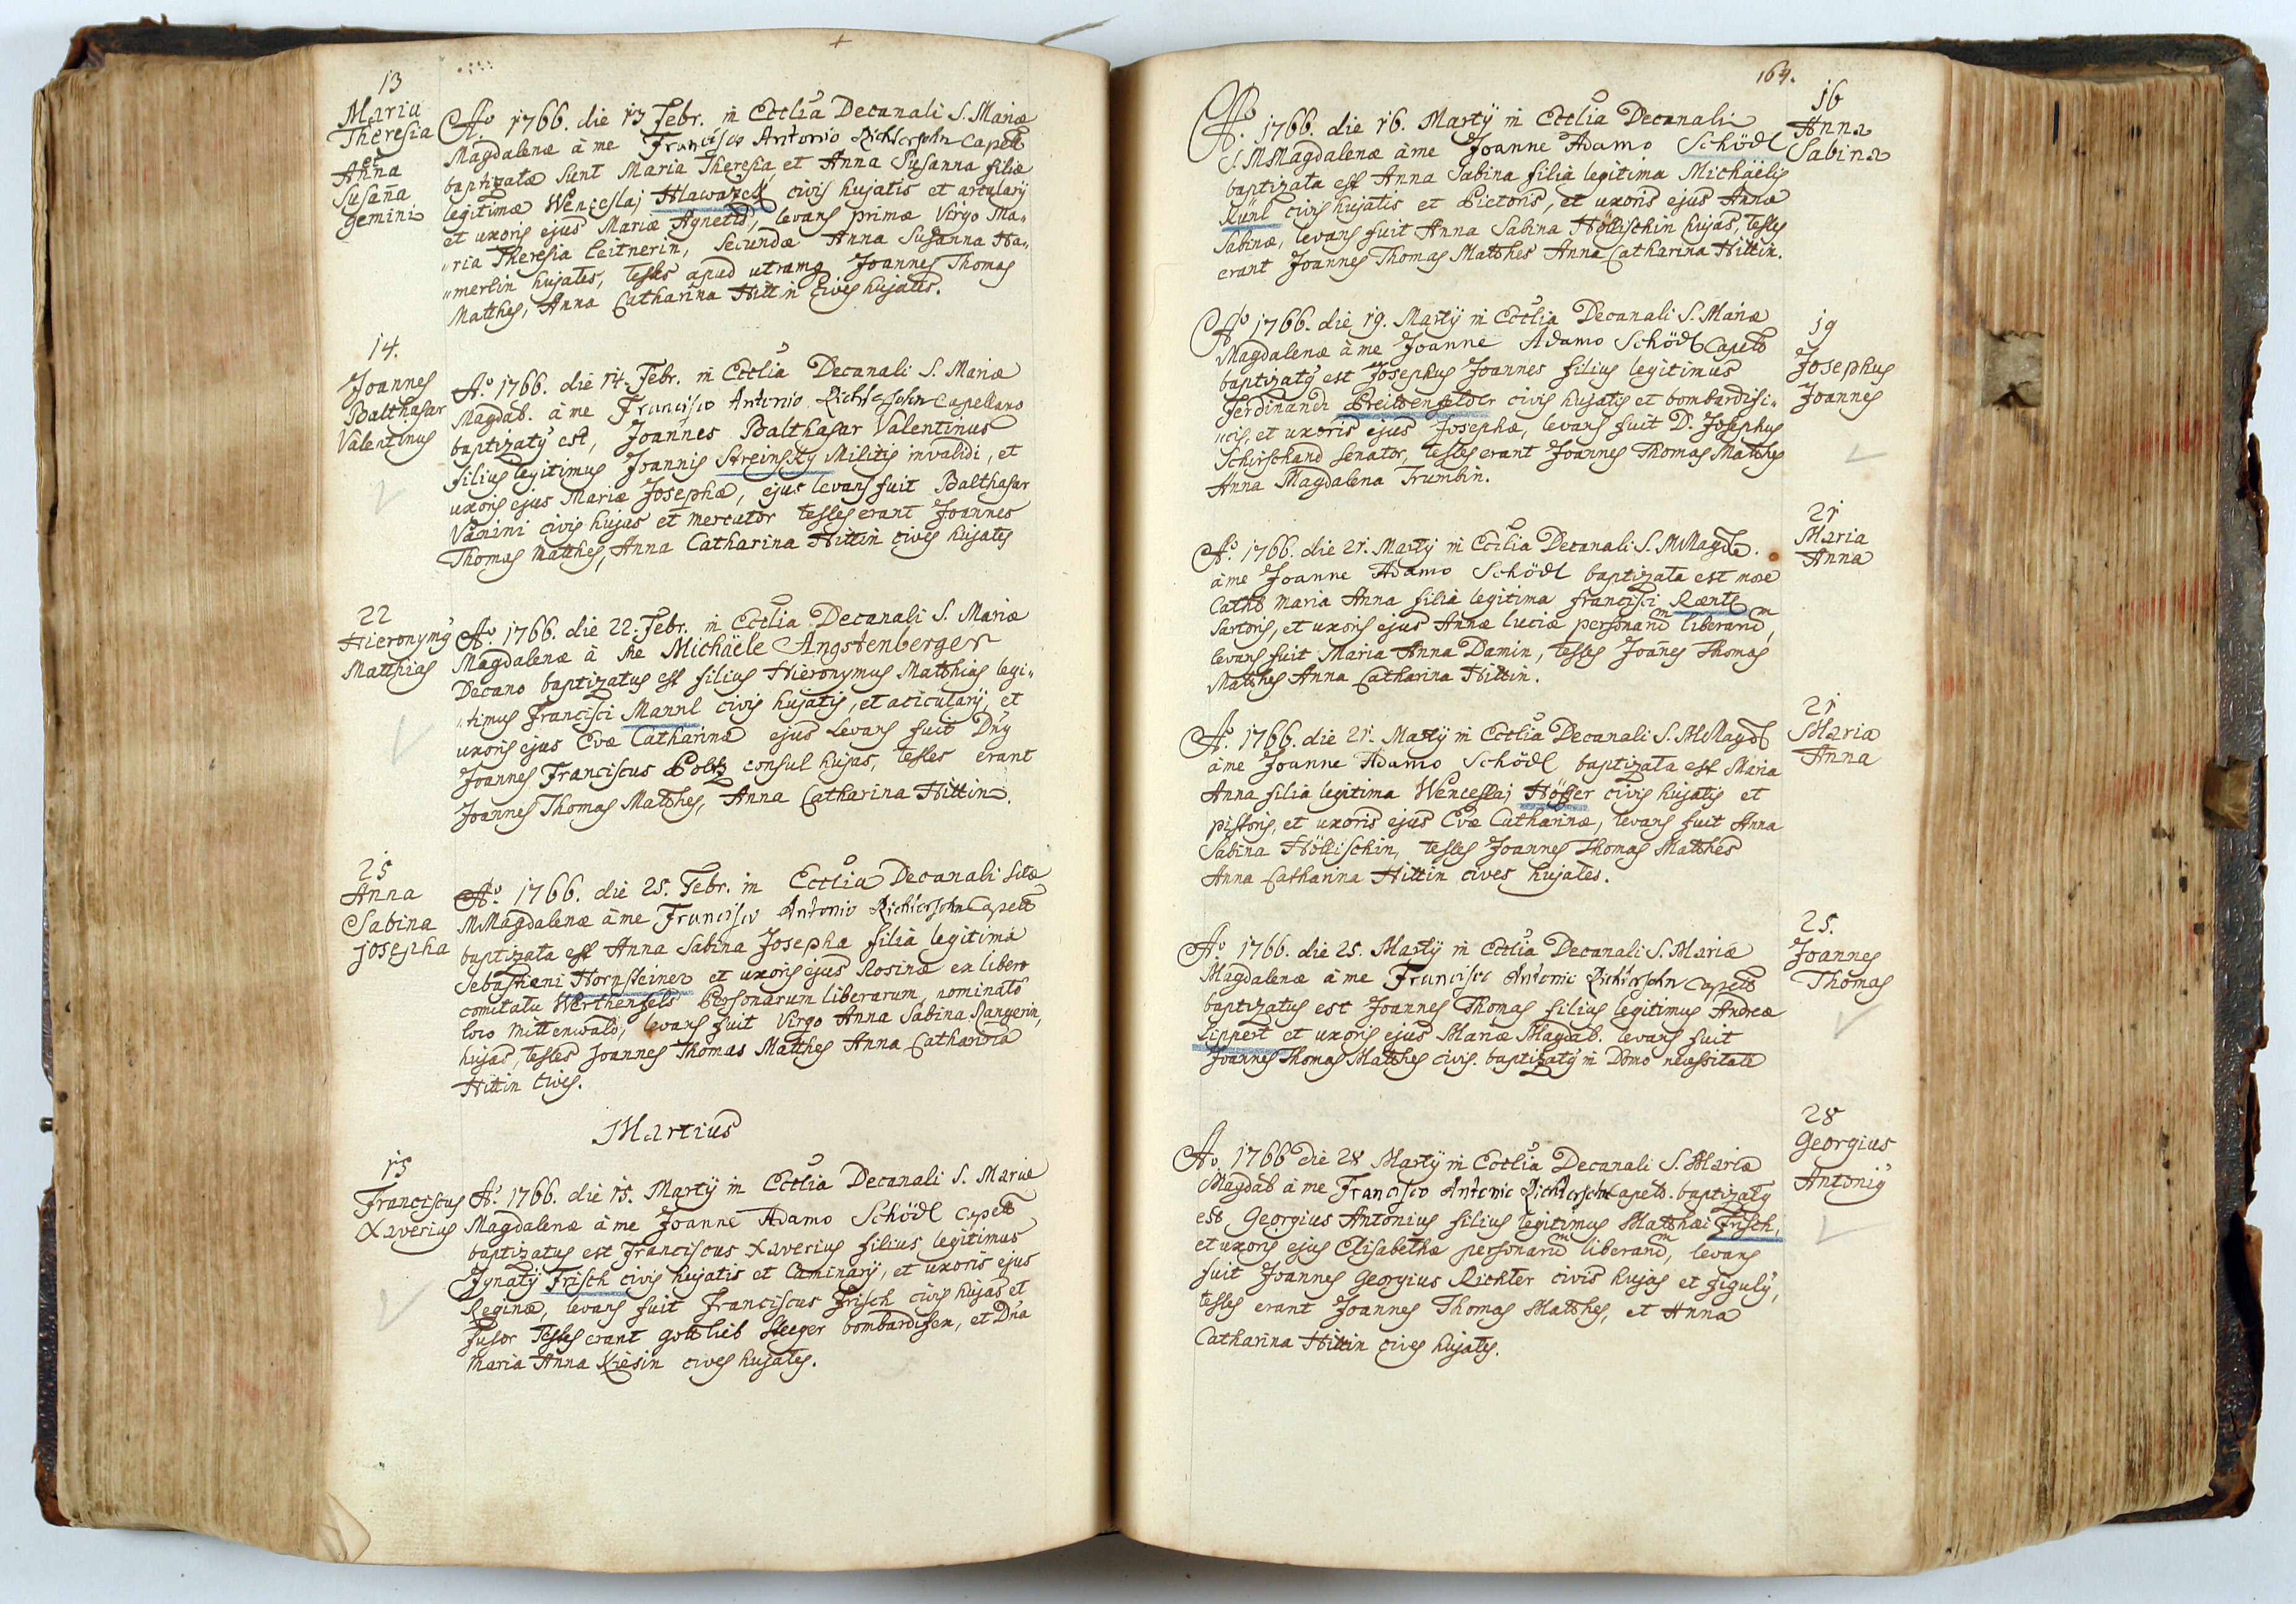 13
Maria
Theresia
et
Anna
Susaña
gemini
Aº 1766. die 13 Febr. in Ecclia Decanali S. Mariæ
Magdalenæ à me Francisco Antonio Richtersohn Capell
baptizatæ sunt Maria Theresia et Anna Susanna filiæ
legitimæ Wenceslaj Hlawazek civis hujatis et arcularÿ
et uxoris ejus Mariæ Agnetis, levans primæ Virgo Ma„
„ria Theresia Leitnerin, secundæ Anna Susanna Ha„
„merlin hujates, testes apud utramq Joannes Thomas
Matthes, Anna Catharina Hittin Cives hujates.
14.
Joannes
Balthasar
Valentinus
Aº 1766. die 14. Febr. in Ecclia Decanali S. Mariæ
Magdal. à me Francisco Antonio Richtersohn Capellano
baptizatg est, Joannes Balthasar Valentinus
filius legitimus Joannis Streinsky Militis invalidi, et
uxoris ejus Mariæ Josephæ, ejus levans fuit Balthasar
Vanini civis hujas et mercator testes erant Joannes
Thomas Matthes, Anna Catharina Hittin cives hujates
22
Hieronymg
Matthias
Aº 1766. die 22. Febr. in Ecclia Decanali S. Mariæ
Magdalenæ à me Michäele Angstenberger
Decano baptizatus est filius Hieronymus Matthias legi„
„timus Francisci Mannl civis hujatis, et acicularÿ, et
uxoris ejus Evæ Catharinæ ejus Levans fuit Dñg
Joannes Franciscus Poltz consul hujas, testes erant
Joannes Thomas Matthes, Anna Catharina Hittin.
25
Anna
Sabina
Josepha
Aº 1766. die 25. Febr. in Ecclia Decanali Stæ
M Magdalenæ à me Francisco Antonio Richtersohn Capell
baptizata est Anna Sabina Josepha filia legitima
Sebastiani Hornsteiner et uxoris ejus Rosinæ ex libero
comitatu Werthenfels Personarum liberarum, nominato
loco Mittenwald, levans fuit Virgo Anna Sabina Rangerin,
hujas, testes Joannes Thomas Matthes Anna Catharina
Hittin Cives.
Martius
15
Franciscus
Xaverius
Aº 1766. die 15. Martÿ in Ecclia Decanali S. Mariæ
Magdalenæ à me Joanne Adamo Schödl Capell
baptizatus est Franciscus Xaverius filius legitimus
Ignatÿ Frisch civis hujatis et Caminarÿ, et uxoris ejus
Reginæ, levans fuit Franciscus Frisch civis hujas et
fusor Testes erant Gottlieb Steeger bombardifex, et Dña
Maria Anna Kiesin cives hujates.
164.
16
Anna
Sabina
Aº 1766. die 16. Martÿ in Ecclia Decanali
S. M Magdalenæ à me Joanne Adamo Schödl
baptizata est Anna Sabina filia legitima Michäelis
Künl civis hujatis et Pictoris, et uxoris ejus Annæ
Sabinæ, levans fuit Anna Sabina Höllischin hujas, testes
erant Joannes Thomas Matthes Anna Catharina Hittin.
19
Josephus
Joannes
Aº 1766. die 19. Martÿ in Ecclia Decanali S. Mariæ
Magdalenæ à me Joanne Adamo Schödl Capell
baptizatg est Josephus Joannes filius legitimus
Ferdinandi Breitenfelder civis hujatis et bombardifi„
„cis, et uxoris ejus Josephæ, levans fuit D. Josephus
Schirschand senator, testes erant Joannes Thomas Matthes
Anna Magdalena Trumbin.
21
Maria
Anna
Aº 1766. die 21. Martÿ in Ecclia Decanali S. M Magdal.
à me Joanne Adamo Schödl baptizata est more
Cathol Maria Anna filia legitima Francisci
Sartoris, et uxoris ejus Annæ Luciæ personarum liberarum,
levans fuit Maria Anna Damin, testes Joañes Thomas
Matthes Anna Catharina Hittin.
21
Maria
Anna
Aº 1766. die 21. Martÿ in Ecclia Decanali S. M Magdal
à me Joanne Adamo Schödl baptizata est Maria
Anna filia legitima Wenceslaj Höfer civis hujatis et
pistoris, et uxoris ejus Evæ Catharinæ, levans fuit Anna
Sabina Höllischin, testes Joannes Thomas Matthes
Anna Catharina Hittin cives hujates.
25.
Joannes
Thomas
Aº 1766. die 25. Martÿ in Ecclia Decanali S. Mariæ
Magdalenæ à me Francisco Antonio Richtersohn Capell
baptizatus est Joannes Thomas filius legitimus Andreæ
Lippert et uxoris ejus Mariæ Magdal. levans fuit
Joannes Thomas Matthes civis. baptizatg in Domo necessitate
28
Georgius
Antonig
Aº 1766 die 28 Martÿ in Ecclia Decanali S. Mariæ
Magdal à me Francisco Antonio Richtersohn Capell. baptizatg
est Georgius Antonius filius legitimus Matthæi Frisch,
et uxoris ejus Elisabethæ personarum liberarum, levans
fuit Joannes Georgius Richter civis hujas et figulg,
testes erant Joannes Thomas Matthes, et Anna
Catharina Hittin cives hujates.